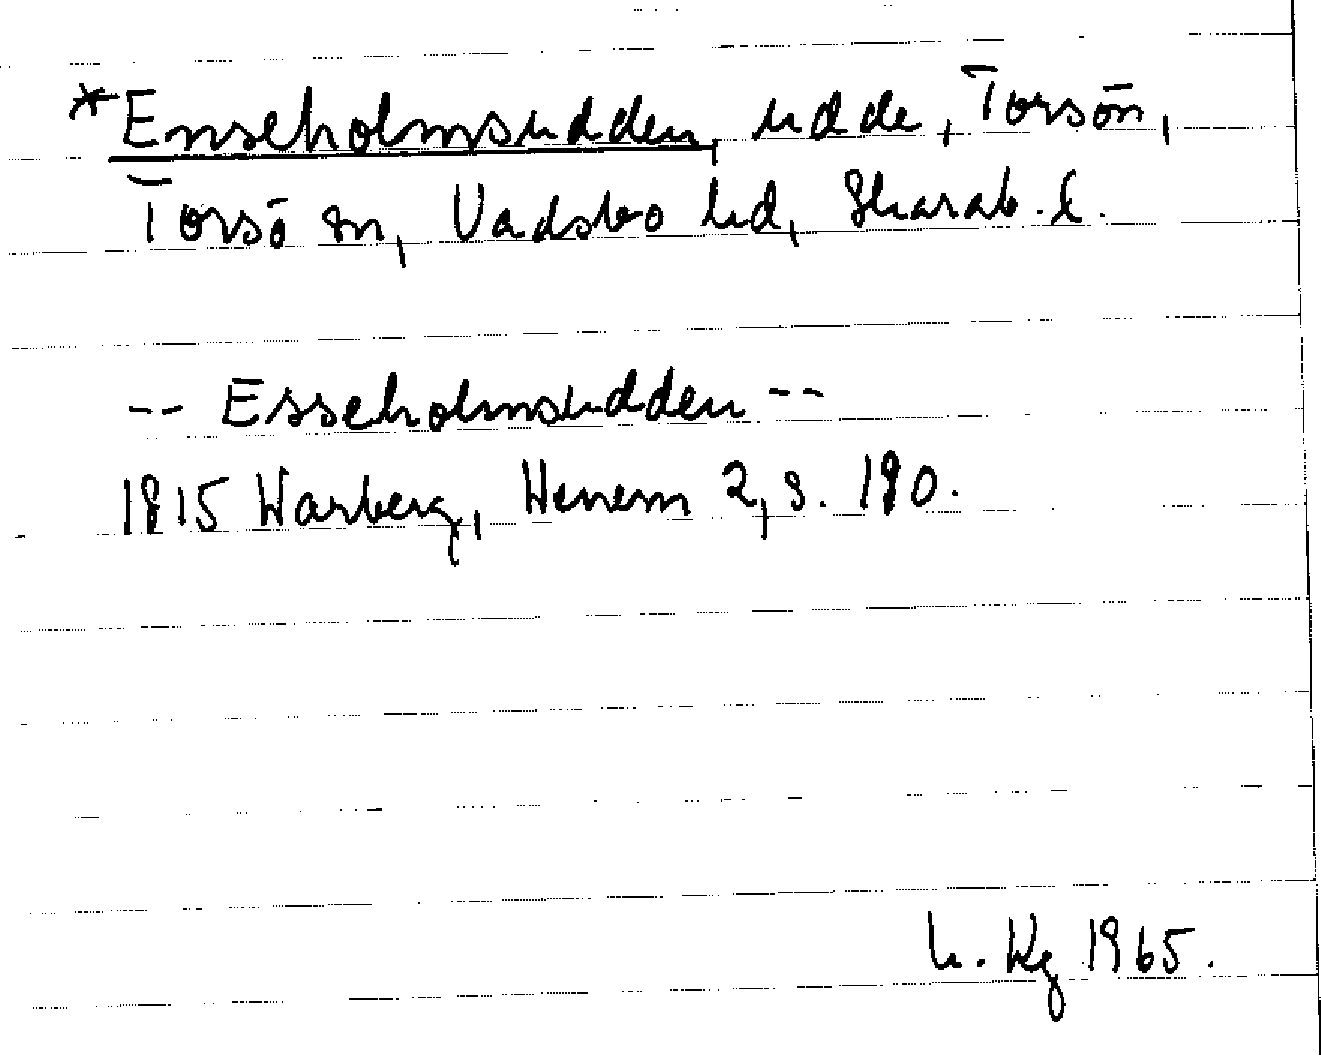 *Enseholmsudden, udde, Torsön,
Torsö sn, Vadsbo hd, Skarab. l.
-- Esseholmsudden --
1815 Warberg, Wenern 2, s. 180.
h. Kg 1965.